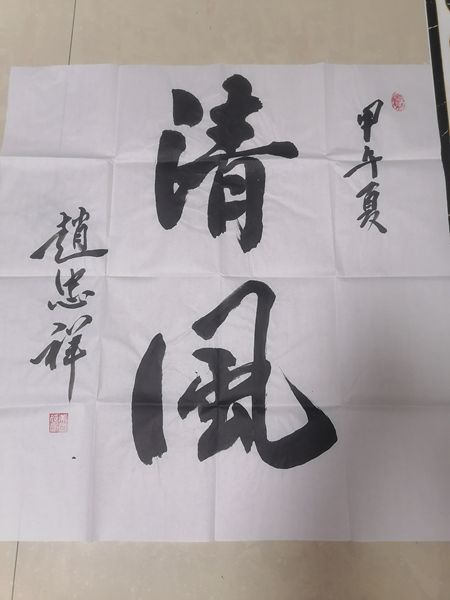 甲午夏
清风
趙忠祥